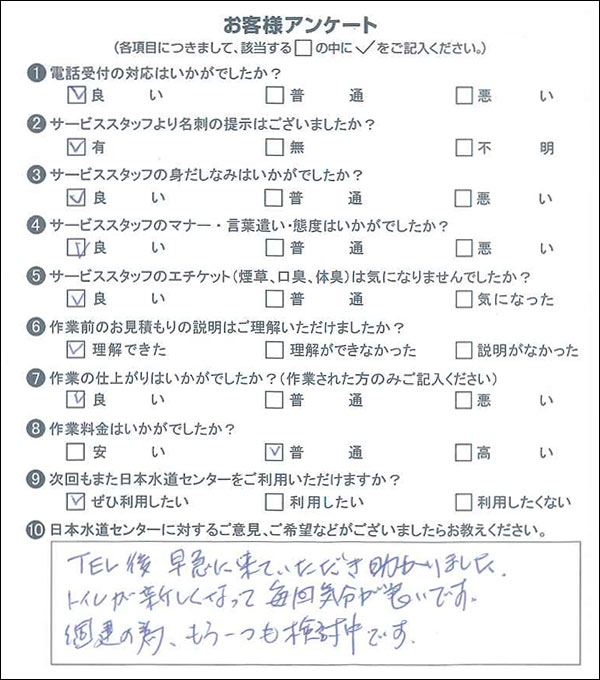 お客様アンケート
(各項目につきまして、該当する□の中に✓をご記入ください。)
❶電話受付の対応はいかがでしたか?
☑良い □普通 □悪い
❷サービススタッフより名刺の提示はございましたか?
☑有 □無 □不明
❸サービススタッフの身だしなみはいかがでしたか?
☑良い □普通 □悪い
❹サービススタッフのマナー・言葉遣い・態度はいかがでしたか?
☑良い □普通 □悪い
❺サービススタッフのエチケット(煙草、口臭、体臭)は気になりませんでしたか?
☑良い □普通 □気になった
❻作業前のお見積もりの説明はご理解いただけましたか?
☑理解できた □理解ができなかった □説明がなかった
❼作業の仕上がりはいかがでしたか?(作業された方のみご記入ください)
☑良い □普通 □悪い
❽作業料金はいかがでしたか?
□安い ☑普通 □高い
❾次回もまた日本水道センターをご利用いただけますか?
☑ぜひ利用したい □利用したい □利用したくない
❿日本水道センターに対するご意見、ご希望などがございましたらお教えください。
TEL後 早急に来ていただき助かりました.
トイレが新しくなって毎回気分が
です.
の為、もう一つも検討中です.